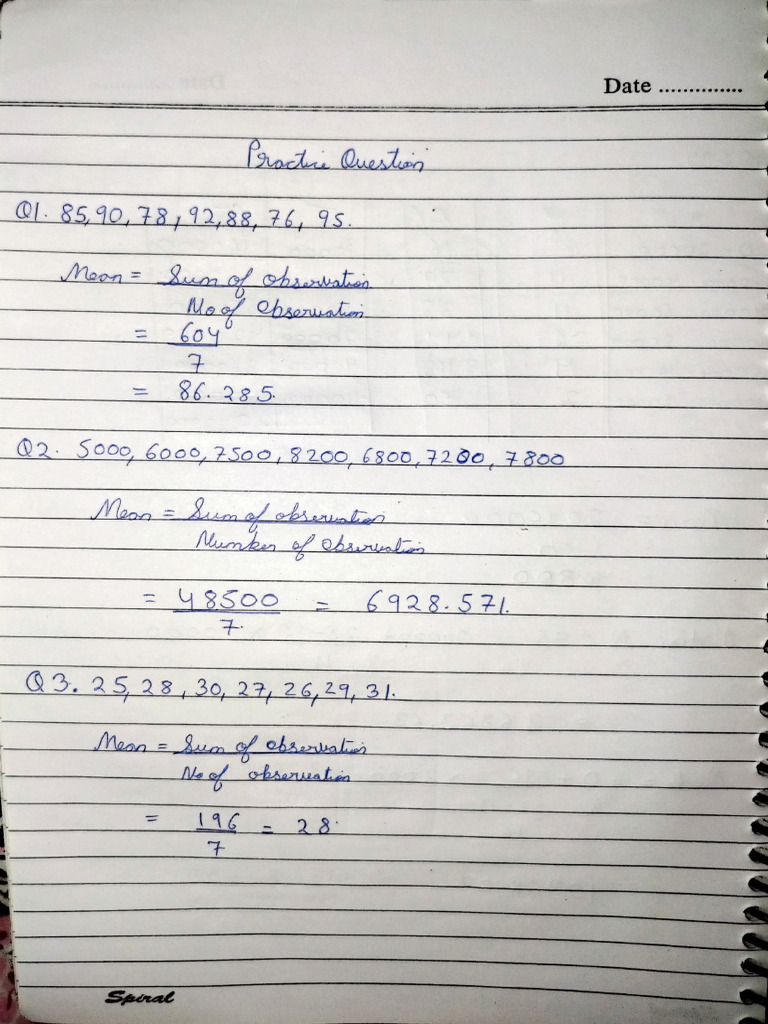 Date ..............
Practice Question
Q1. 85, 90, 78, 92, 88, 76, 95.
Mean = Sum of observation
No of Observation
= 604
7
= 86.285.
Q2. 5000, 6000, 7500, 8200, 6800, 7200, 7800
Mean = Sum of observation
Number of Observation
= 48500 = 6928.571.
7.
Q3. 25, 28, 30, 27, 26, 29, 31.
Mean = Sum of observation
No of observation
= 196 = 28.
7
Spiral